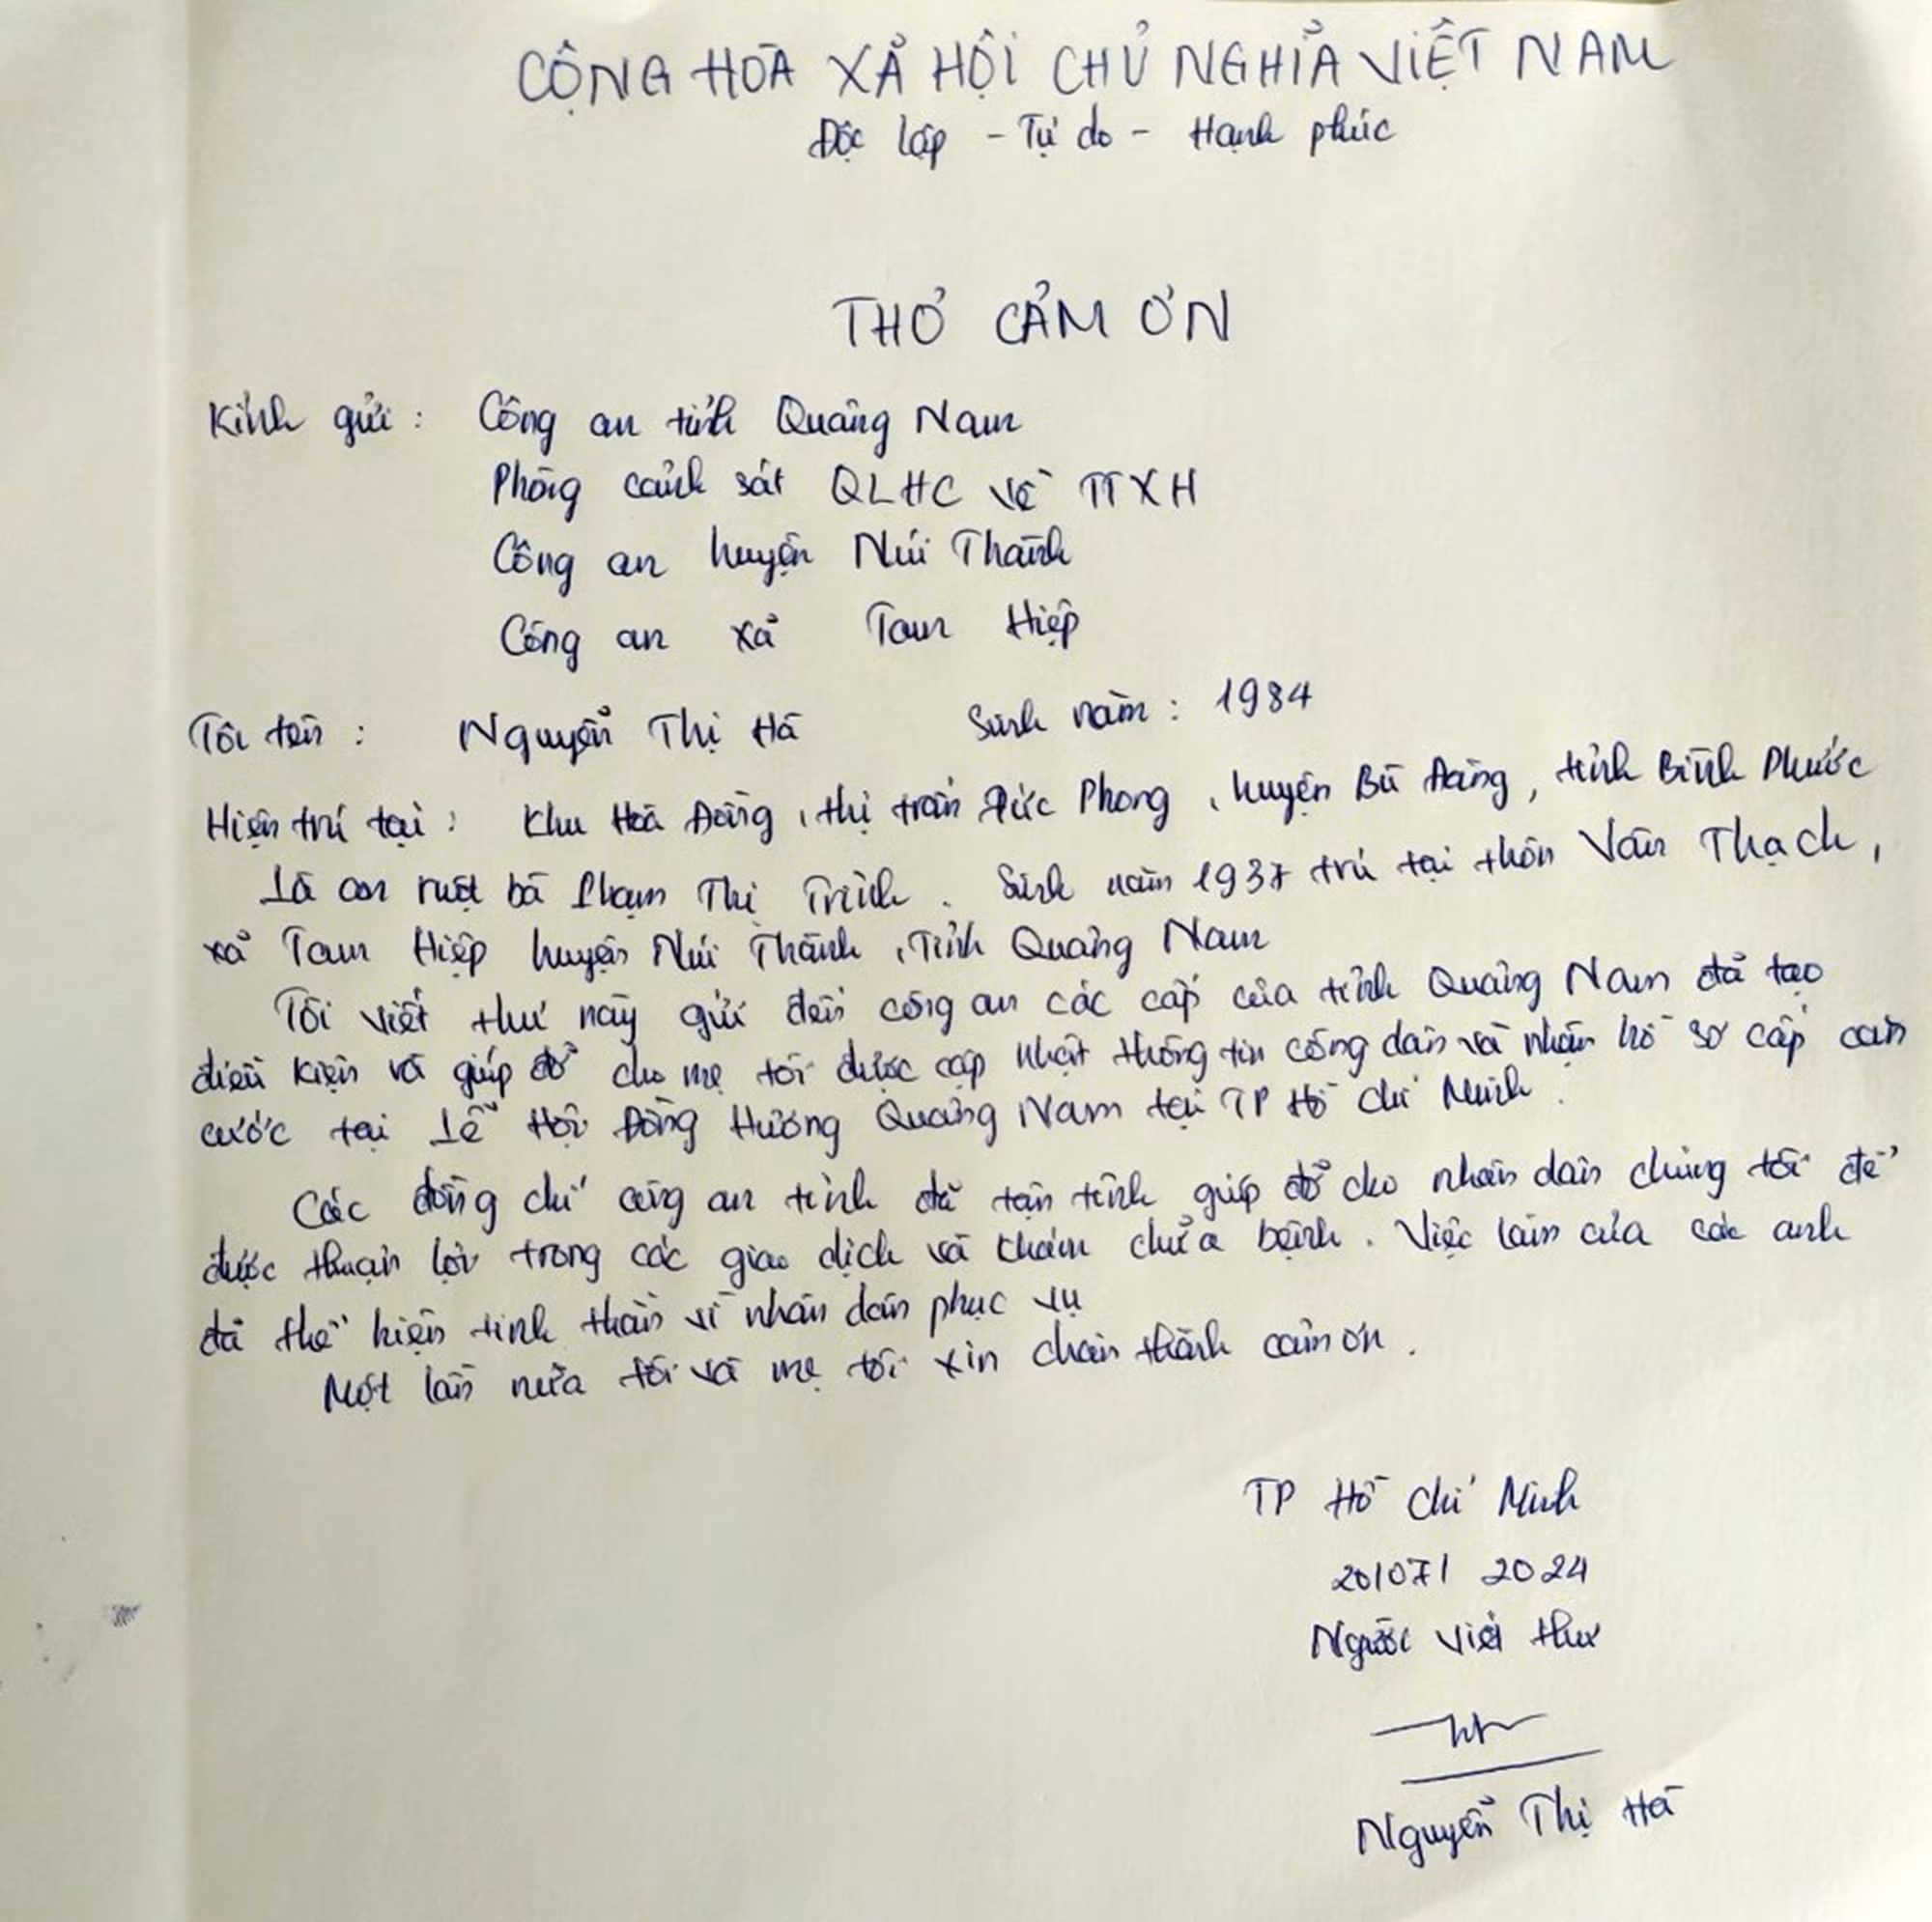 CỘNG HÒA XẢ HỘI CHỦ NGHĨA VIỆT NAM
Độc lập - Tự do - Hạnh phúc
THƠ CẢM ƠN
Kính gửi : Công an tỉnh Quảng Nam
Phòng cảnh sát QLHC về TTXH
Công an huyện Núi Thành
Công an xả Tam Hiệp
Tôi tên : Nguyễn Thị Hà Sinh năm : 1984
Hiện trú tại : Khu Hoà Đồng, thị trấn Đức Phong, huyện Bù Đăng, tỉnh Bình Phước
Là con ruột bà Phạm Thị Trình. Sinh năm 1937 trú tại thôn Vân Thạch,
xả Tam Hiệp huyện Núi Thành, Tỉnh Quảng Nam
Tôi viết thư này gửi đến công an các cấp của tỉnh Quảng Nam đả tạo
điều kiện và giúp đở cho mẹ tôi được cập nhật thông tin công dân và nhận hồ sơ cấp căn
cước tại Lễ Hội Đồng Hương Quảng Nam tại TP Hồ Chí Minh.
Các đồng chí công an tỉnh đã tận tình giúp đở cho nhân dân chúng tôi để
được thuận lợi trong các giao dịch và khám chửa bệnh. Việc làm của các anh
đã thể hiện tinh thần vì nhân dân phục vụ
Một lần nữa tôi và mẹ tôi xin chân thành cảm ơn.
TP Hồ Chí Minh
20/07/ 2024
Người viết thư
Nguyễn Thị Hà